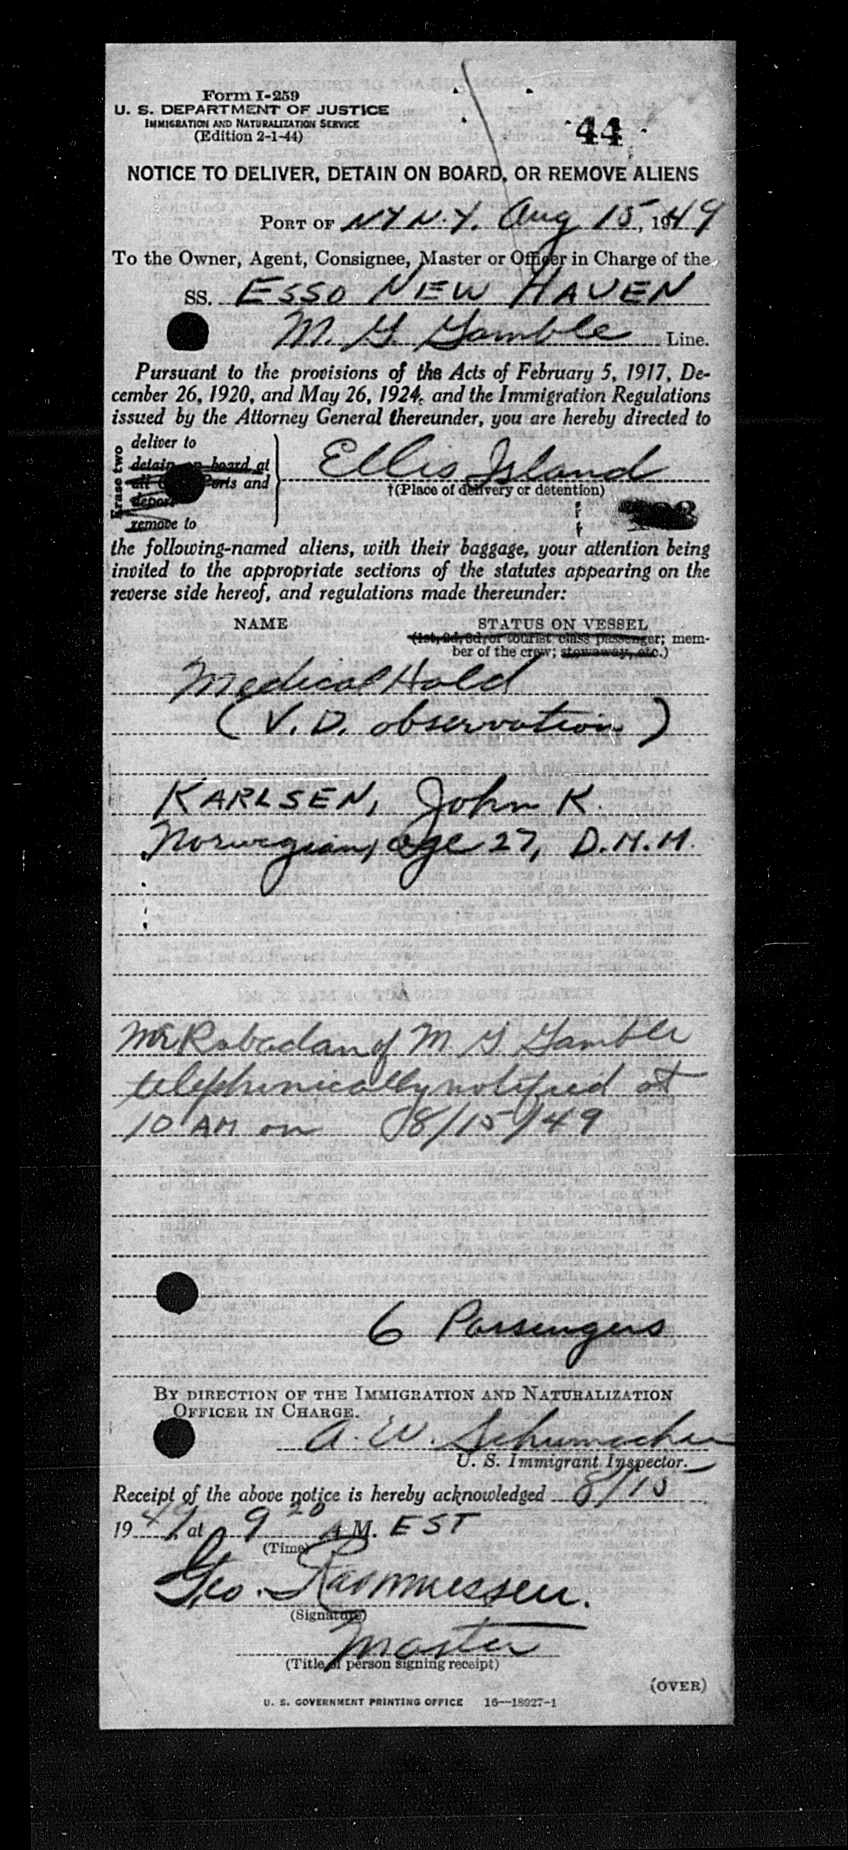 Form I-259
U. S. DEPARTMENT OF JUSTICE
IMMIGRATION AND NATURALIZATION SERVICE
(Edition 2-1-44)
44
NOTICE TO DELIVER, DETAIN ON BOARD, OR REMOVE ALIENS
PORT OF NY N.Y. Aug 15, 1949
To the Owner, Agent, Consignee, Master or Officer in Charge of the
SS. ESSO NEW HAVEN
M. G. Gamble Line.
Pursuant to the provisions of the Acts of February 5, 1917, De-
cember 26, 1920, and May 26, 1924, and the Immigration Regulations
issued by the Attorney General thereunder, you are hereby directed to
Erase two
deliver to
detain on board at
all Ports and
deport
remove to
Ellis Island
†(Place of delivery or detention)
the following-named aliens, with their baggage, your attention being
invited to the appropriate sections of the statutes appearing on the
reverse side hereof, and regulations made thereunder:
NAME STATUS ON VESSEL
(1st, 2d, 3d, or tourist class passenger; mem-
ber of the crew; stowaway, etc.)
Medical Hold
(V. D. observation)
KARLSEN, John K.
Norwegian, age 27, D.H.M.
Mr Rabadan of M G Gamble
telephonically notified at
10 AM on 8/15/49
6 Passengers
BY DIRECTION OF THE IMMIGRATION AND NATURALIZATION
OFFICER IN CHARGE.
A. W. Schumacher
U. S. Immigrant Inspector.
Receipt of the above notice is hereby acknowledged 8/15
1949 at 9 20 A M. EST
(Time)
Geo. Rasmussen.
(Signature)
Master
(Title of person signing receipt)
(OVER)
U. S. GOVERNMENT PRINTING OFFICE 16—18027-1